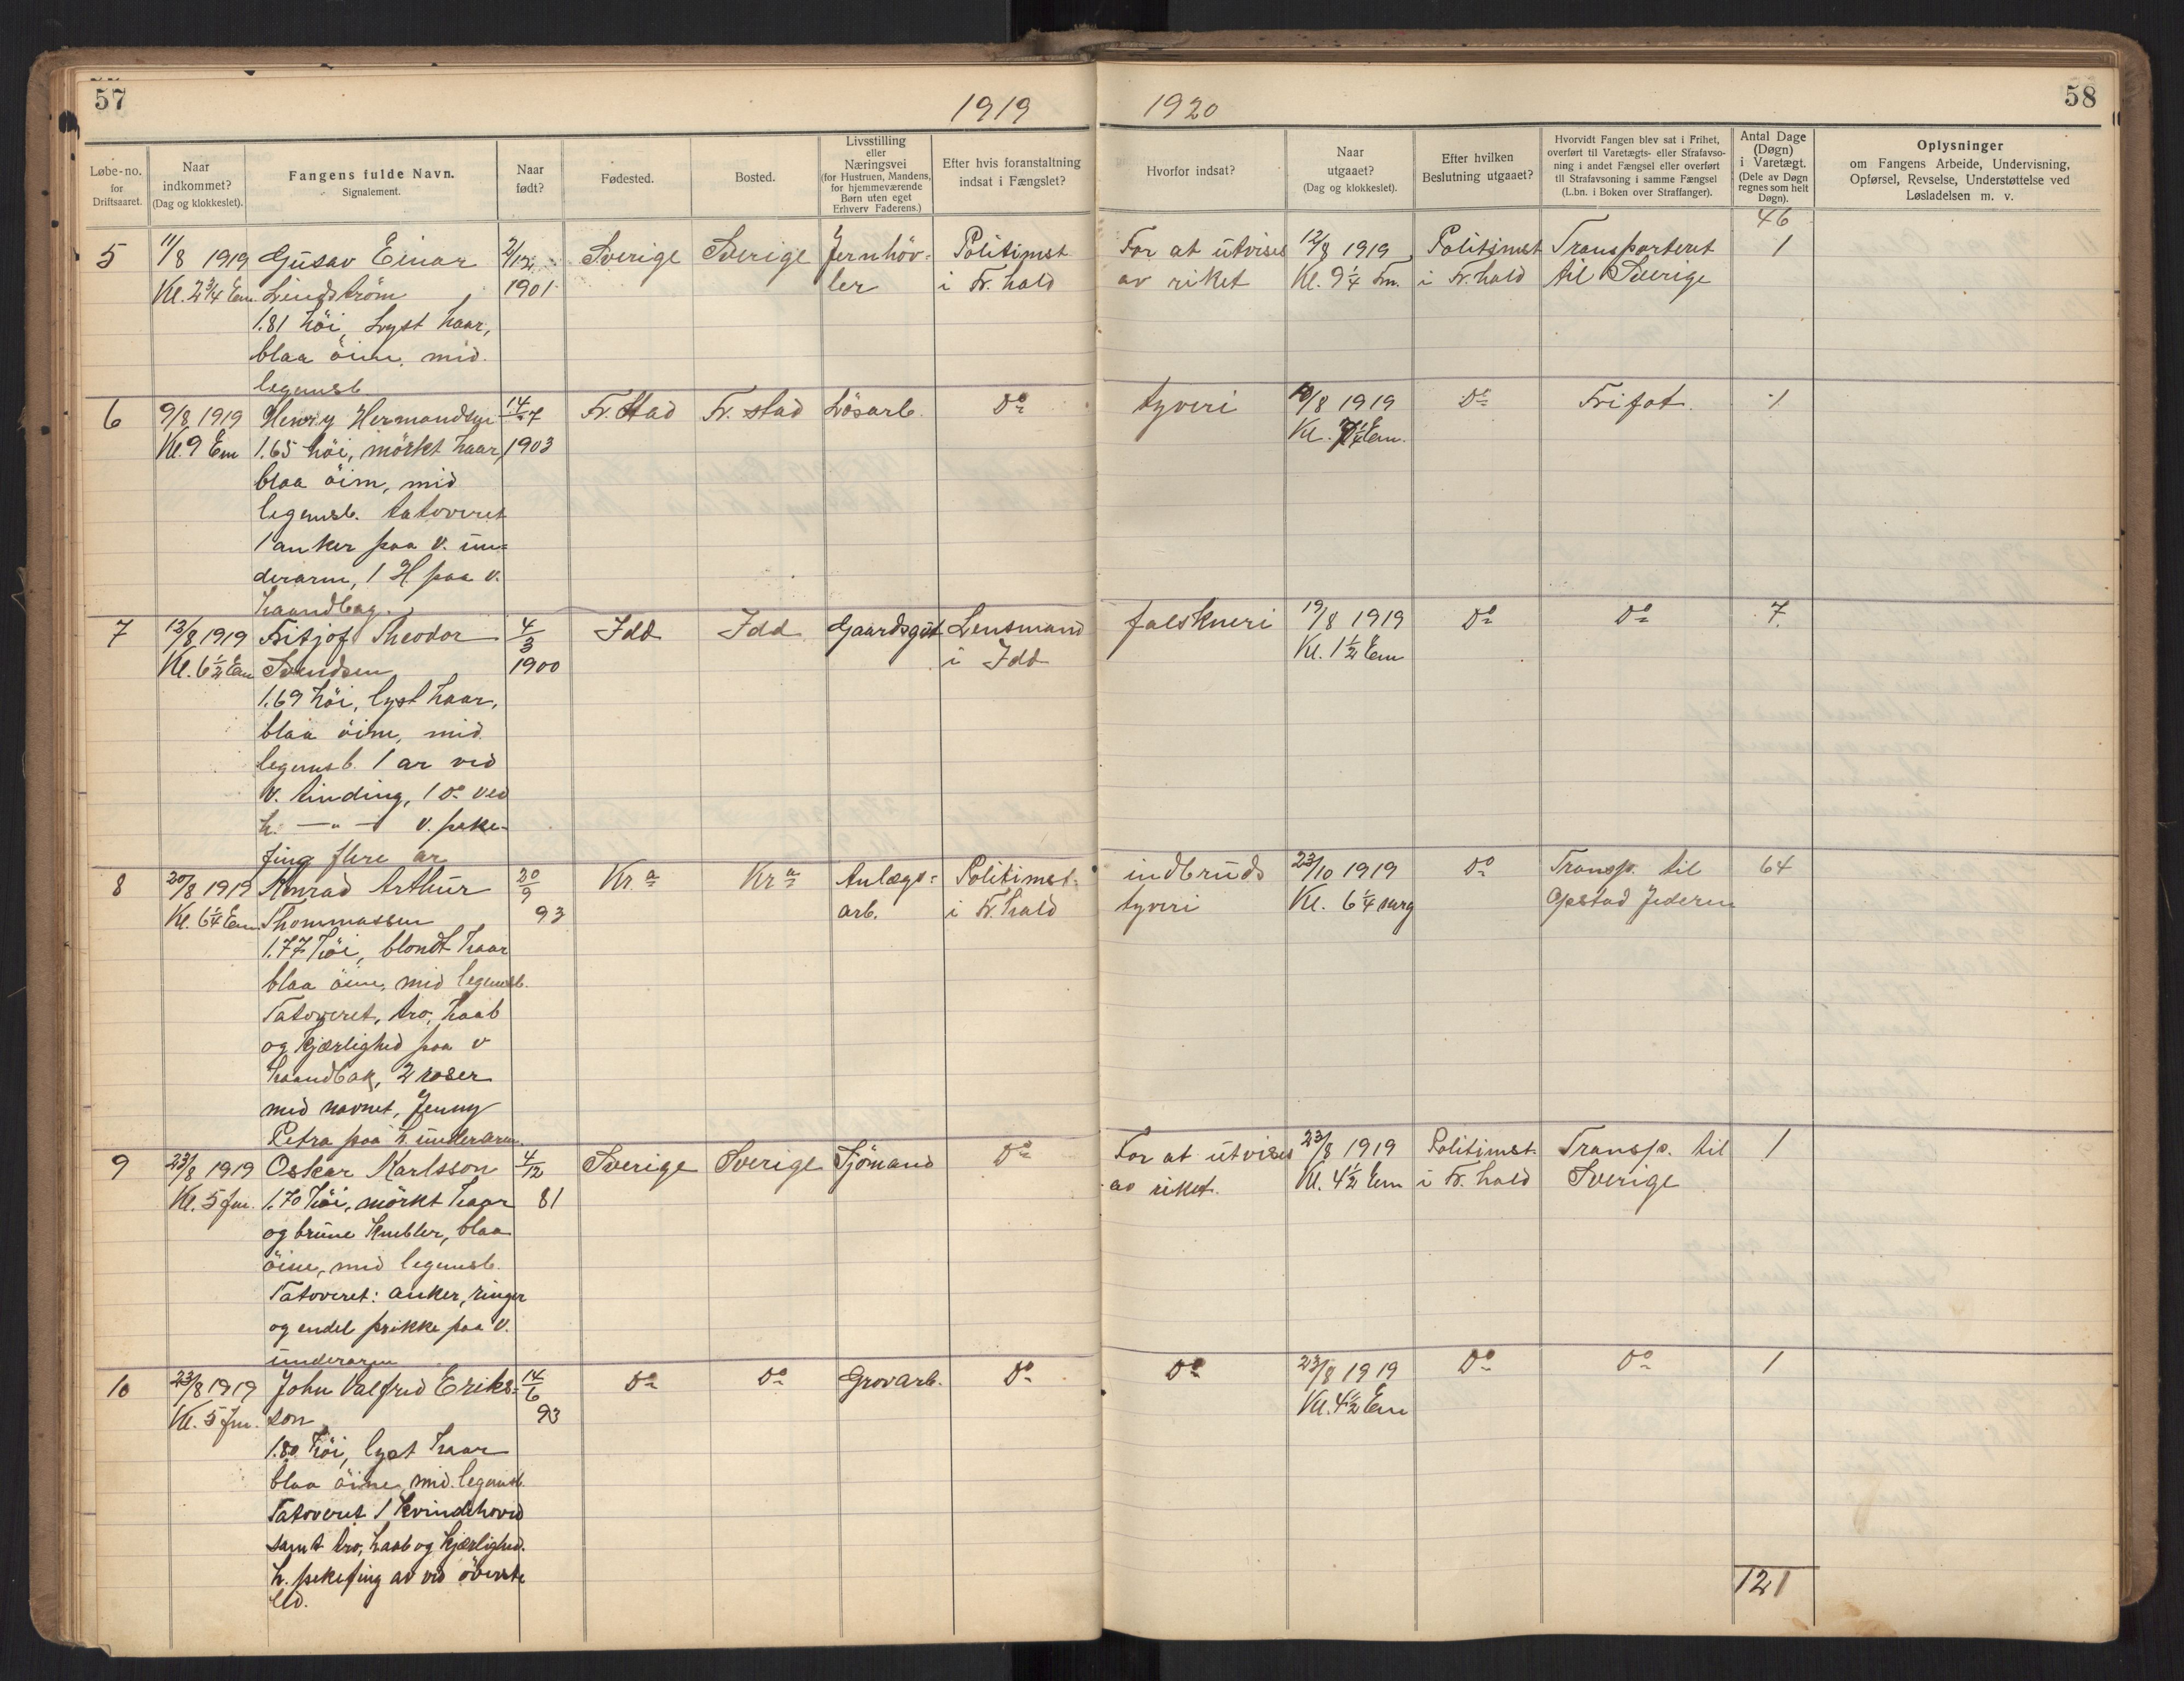 57
1919
Løbe-no. for Driftsaaret.
Naar indkommet? (Dag og klokkeslet).
Fangens fulde Navn. Signalement.
Naar født?
Fødested.
Bosted.
Livsstilling eller Næringsvei (for Hustruen, Mandens, for hjemmeværende Børn uten eget Erhverv Faderens.)
Efter hvis foranstaltning indsat i Fængslet?
5 11/8 1919 Gusav Einar 2/12 Sverige Sverige Jernhöv- Politimst
Kl. 2 3/4 Em. Lindström 1901 ler i Fr. hald
1.81 höi, Lyst haar,
blaa öine, mid.
legemsb
6 9/8 1919 Henry Hermandsen 14/7 Fr. Stad Fr. stad Lösarb. Do
Kl. 9 Em 1.65 höi, mörkt haar, 1903
blaa öine, mid
legemsb. tatoveret
1 anker paa v. un=
derarm, 1 H paa v.
haandbag.
7 13/8 1919 Fritjof Theodor 4/3 Idd Idd Gaardsgut Lensmand
Kl. 6 1/2 Em Svendsen 1900 i Idd
1.69 höi, lyst haar,
blaa öine, mid.
legemsb. 1 ar ved
v. tinding, 1 Do ved
h. —"— v. peke-
fing flere ar
8 20/8 1919 Konrad Arthur 20/9 Kr.a Kr.a Anlægs= Politimst.
Kl. 6 1/4 Em. Thommassen 93 arb. i Fr. hald
1.77 höi, blondt haar
blaa öine, mid legemsb.
Tatoveret, tro, haab
og kjærlighed paa v
haandbak, 2 roser
med navnet, Jenny
Petra paa h. underarm.
9 23/8 1919 Oskar Karlsson 4/12 Sverige Sverige Sjömand Do
Kl. 5 fm. 1.70 höi, mörkt haar 81
og brune knebler, blaa
öine, mid legemsb.
Tatoveret: anker, ringer
og endel prikke paa v.
underarm
10 23/8 1919 John Valfrid Eriks= 14/6 Do Do Grovarb. Do
Kl. 5 fm. son 93
1.80 höi, lyst haar
blaa öine, mid. legemsb.
Tatoveret 1 kvindehoved
samt tro, haab og kjærlighed.
h. pekefing av ved överste
led.
1920
58
Hvorfor indsat?
Naar utgaaet? (Dag og klokkeslet).
Efter hvilken Beslutning utgaaet?
Hvorvidt Fangen blev sat i Frihet, overført til Varetægts- eller Strafavsoning i andet Fængsel eller overført til Strafavsoning i samme Fængsel (L.bn. i Boken over Straffanger).
Antal Dage (Døgn) i Varetægt. (Dele av Døgn regnes som helt Døgn).
Oplysninger om Fangens Arbeide, Undervisning, Opførsel, Revselse, Understøttelse ved Løsladelsen m. v.
46
For at utvises 12/8 1919 Politimst Transporteret 1
av riket Kl. 9 1/4 Fm. i Fr. hald til Sverige
tyveri 10/8 1919 Do Fri fot. 1
Kl. 7 1/4 Em.
falskneri 19/8 1919 Do Do 7
Kl. 1 1/2 Em
indbruds 23/10 1919 Do Transp. til 64
tyveri Kl. 6 1/4 mrg Opstad Jæderen
For at utvises 23/8 1919 Politimst. Transp. til 1
av riket. Kl. 4 1/2 Em i Fr. hald Sverige
Do 23/8 1919 Do Do 1
Kl. 4 1/2 Em
121